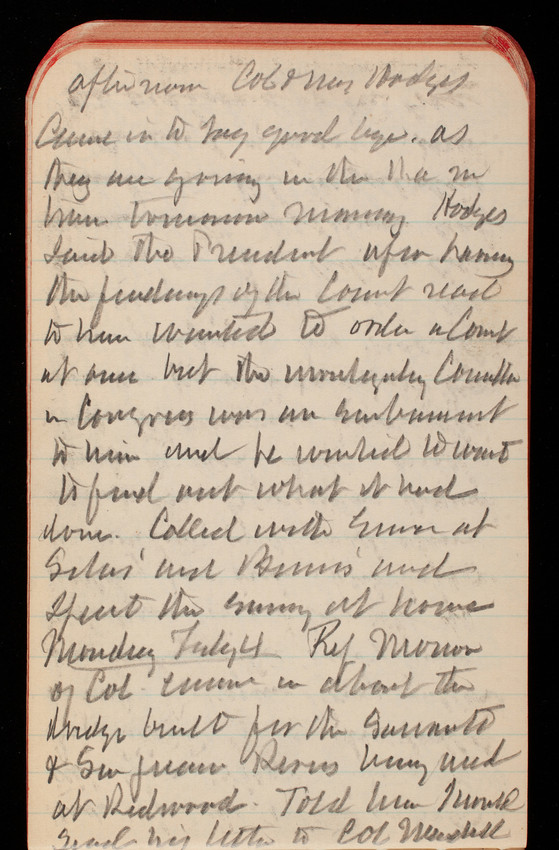 afternoon Col & Mrs Hodges
Came in to say good bye. as
they are going in the
tomorrow morning Hodges
said the President after having
the findings of the Court read
to him wanted to order a Court
at once but the investigating Committee
in Congress was an embarrassment
to him and he wanted to wait
to find out what it had
done. Called with Emma at
and and
spent the evening at home
Monday Rep
of Cal came in about the
dredge built for the Sacramento
& San Joaquin Rivers being used
at Redwood. Told him I would
send his letter to Col Mendell